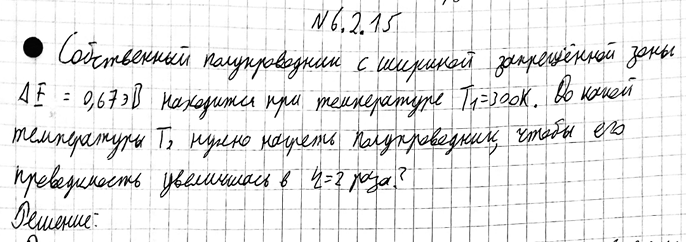 N6.2.15
Собственный полупроводник с шириной запрещённой зоны
ΔE = 0,67эВ находится при температуре T₁=300К. До какой
температуры T₂ нужно нагреть полупроводник, чтобы его
проводимость увеличилась в η=2 раза?
Решение: